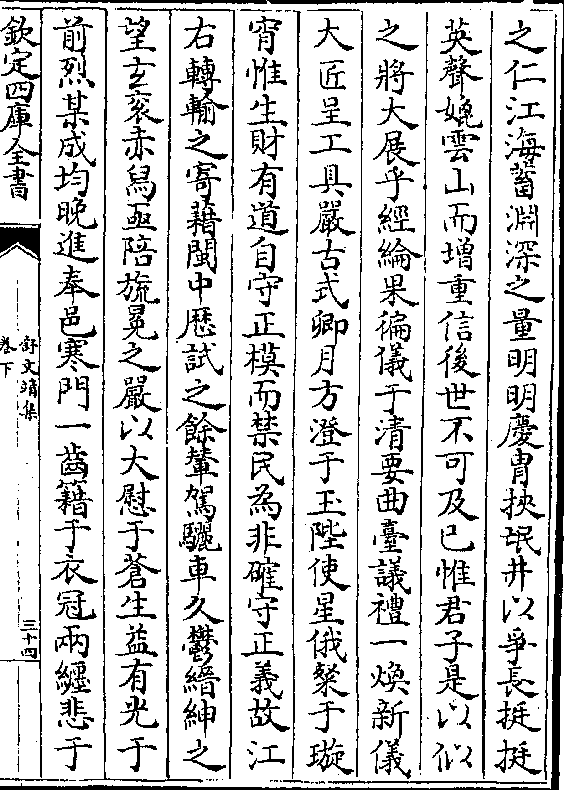 之仁江海蓄淵深之量明明慶胄挾岷井以爭長挺挺
英聲娩雲山而增重信後世不可及已惟君子是以似
之將大展乎經綸果徧儀于清要曲臺議禮一煥新儀
大匠呈工具嚴古式卿月方澄于玉陛使星俄粲于璇
宵惟生財有道自守正模而禁民為非確守正義故江
右轉輸之寄藉閩中歷試之餘輦駕驪車久鬱縉紳之
望𤣥衮赤舄亟陪旒冕之嚴以大慰于蒼生益有光于
前烈某成均晚進奉邑寒門一齒籍于衣冠兩纏悲于
欽定四庫全書
舒文靖集
卷下
三十四